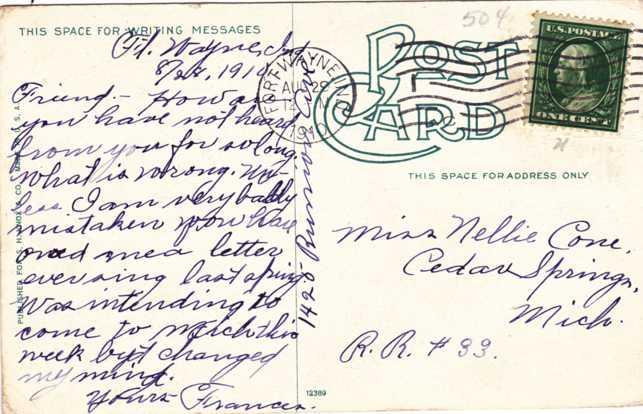 THIS SPACE FOR WRITING MESSAGES
Ft. Wayne, Ind
8/29, 1910
Friend:- How are
you have not heard
from you for so long
what is wrong. Un-
less I am very badly
mistaken you have
owed me a letter
ever sing last spring
Was intending to
come to Mich this
week but changed
my mind.
Yours Frances.
1428
PUBLISHED FOR S. H. KNOX & CO.
FORT WAYNE
AUG 29
1910
POST
CARD
504
U.S. POSTAGE
ONE CENT
THIS SPACE FOR ADDRESS ONLY
Miss Nellie Cone,
Cedar Springs,
Mich.
R.R. # 33.
12389